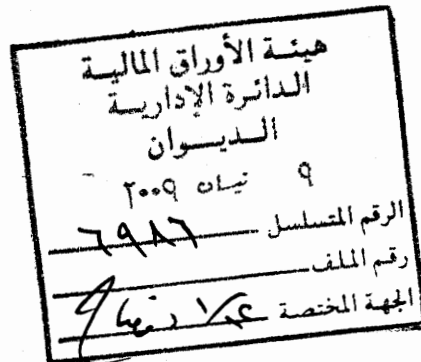 هيئة الأوراق المالية
الدائرة الإدارية
الديوان
٩ نيسان ٢٠٠٩
الرقم المتسلسل ٦٩٨٦
رقم الملف
الجهة المختصة